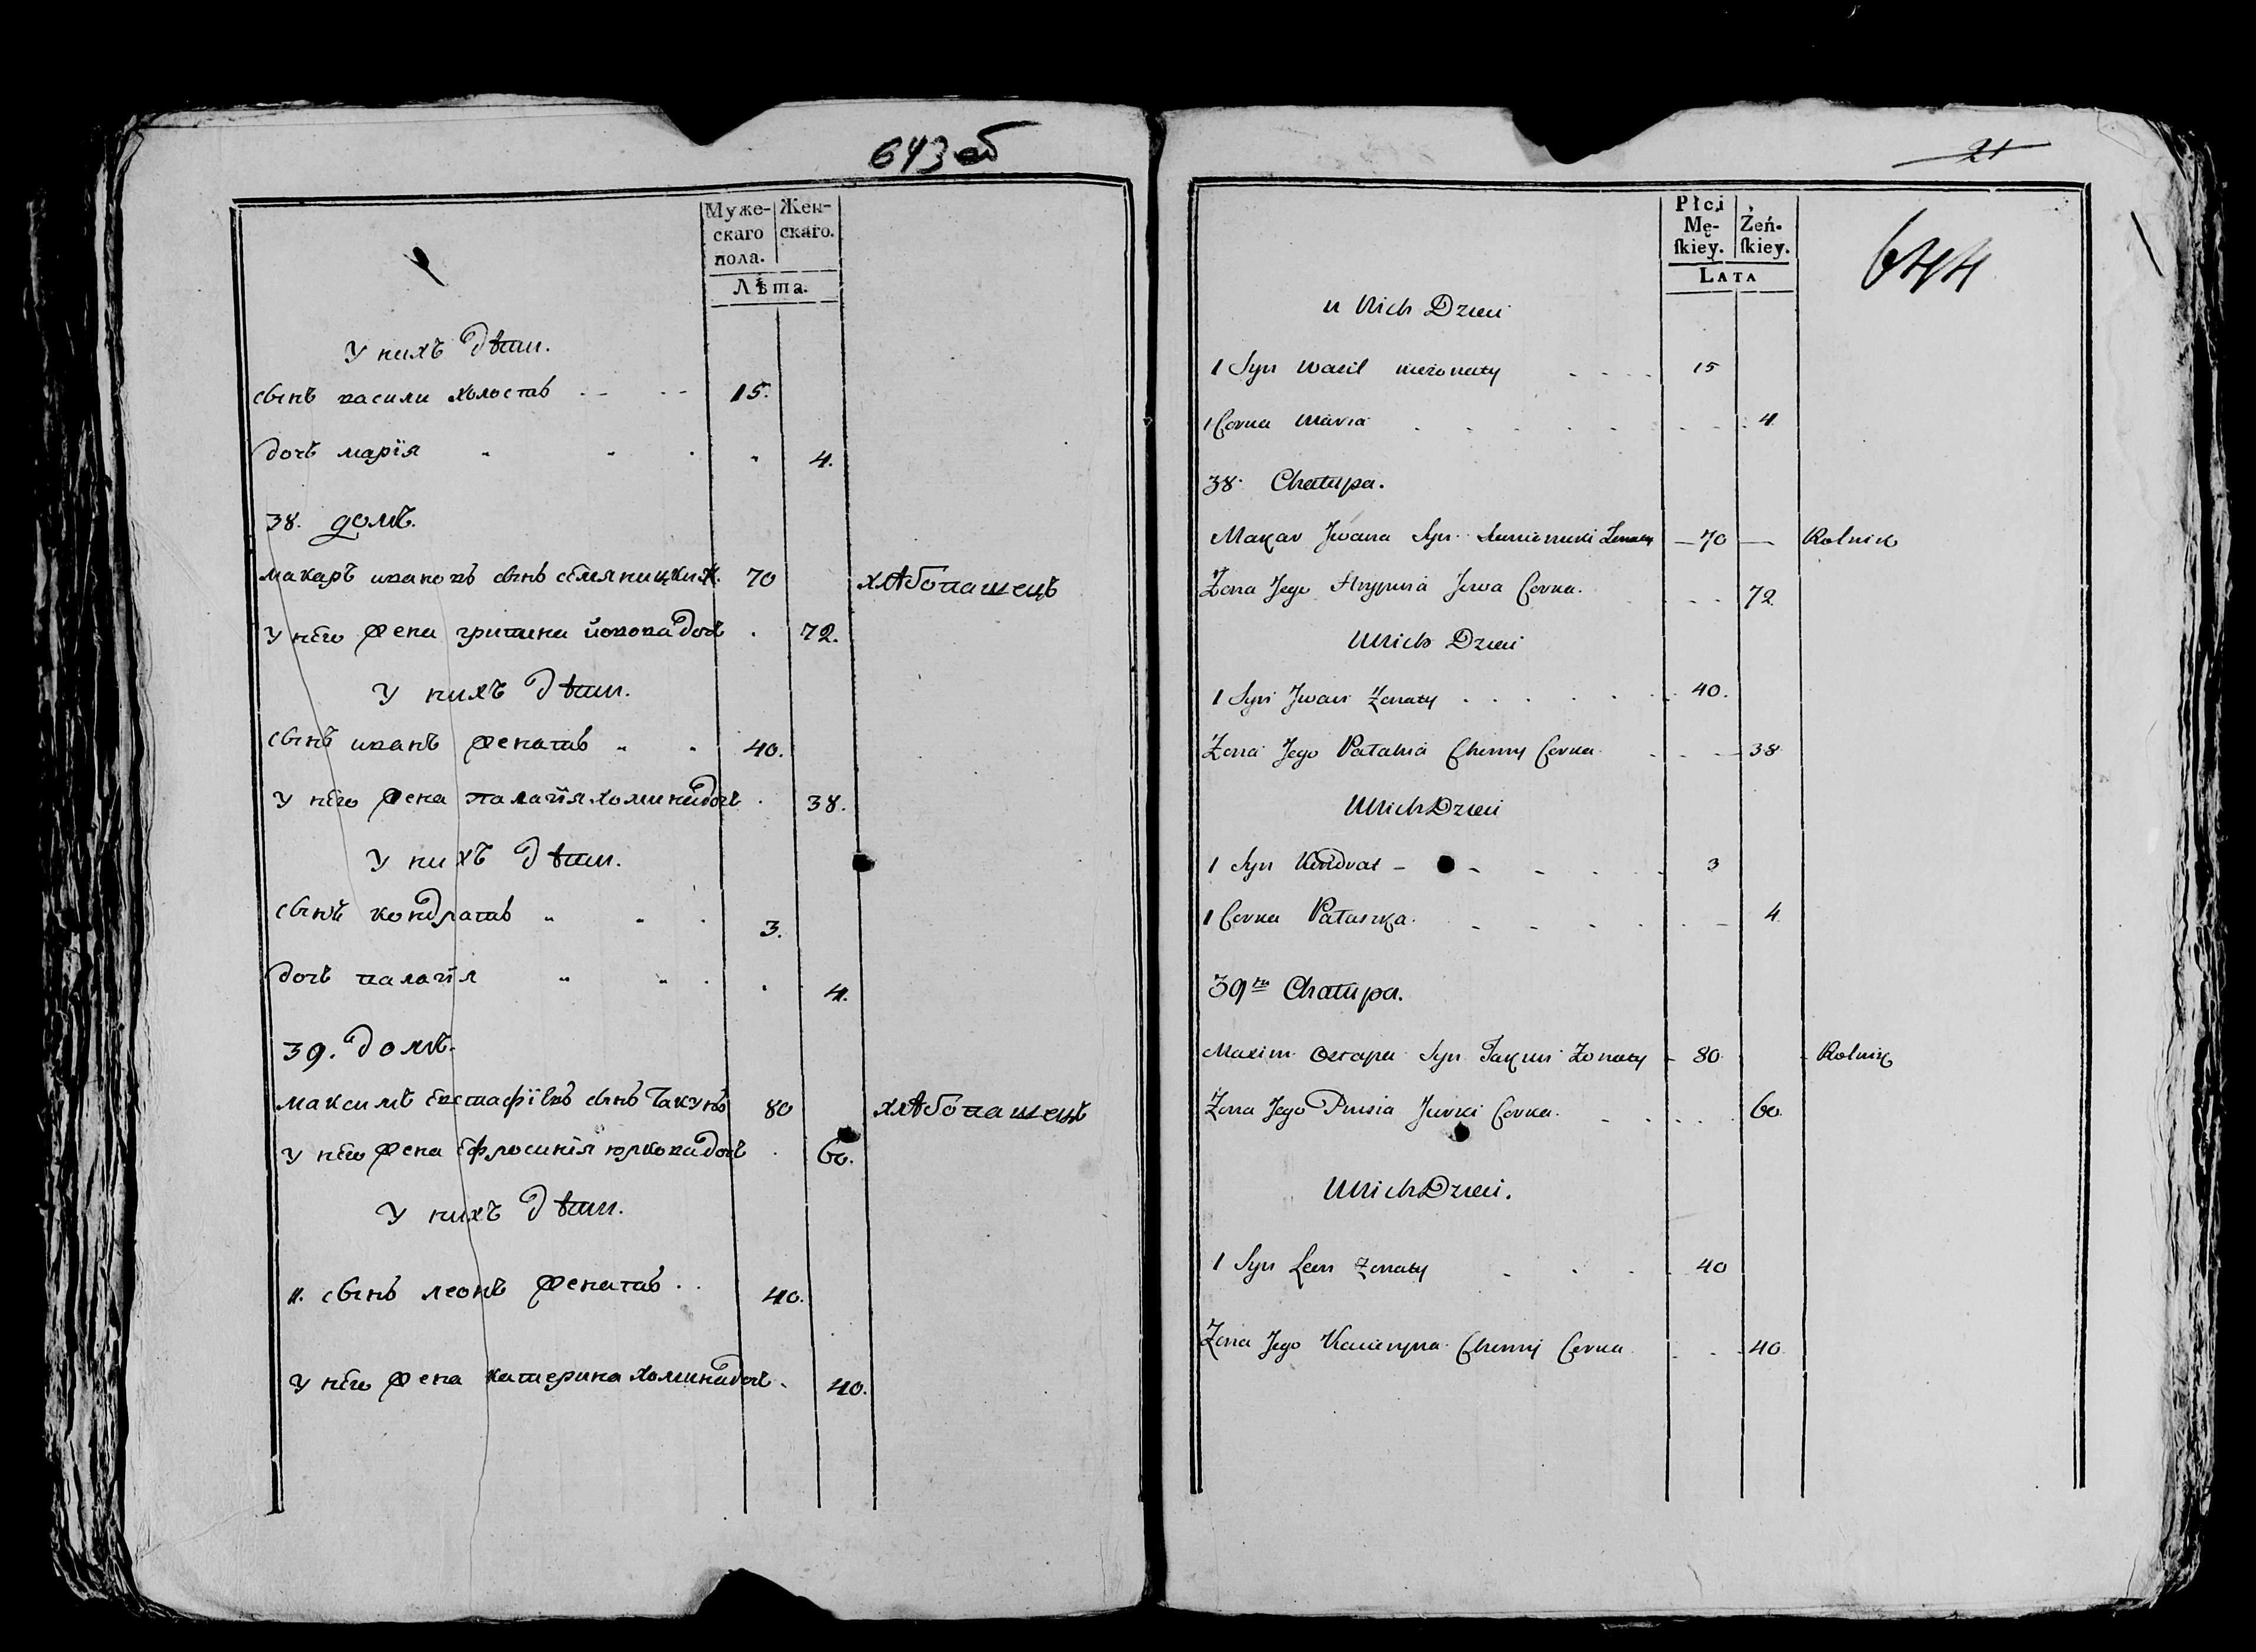 643 об
Муже-
скаго
пола.
Жен-
скаго.
Лѣта.
У нихъ дѣти.
сынъ васили холостъ 15.
дочь марія 4.
38. домъ.
макаръ ивановъ сынъ семяницкий ж. 70 хлѣбопашецъ
у него жена гришина йовова дочь 72.
У нихъ дѣти.
сынъ иванъ женатъ 40.
у него жена палагія хомина дочь 38.
У нихъ дѣти.
сынъ кондратъ 3.
дочь палагія 4.
39. домъ.
максимъ евстафіевъ сынъ Такунъ 80 хлѣбопашецъ
у него жена ефросинія юркова дочь 60.
У нихъ дѣти.
сынъ леонъ женатъ 40.
у него жена катерина хомина дочь 40.
21
644
Płci
Mę-
ſkiey.
Żeń-
ſkiey.
LATA
u Nich Dzieci
1 Syn Wasil nieżonaty 15
1 Corka Maria 4
38. Chałupa.
Makar Jwana Syn Żonaty 70 Rolnik
Żona Jego Hrypina Jowa Corka. 72.
U Nich Dzieci
1 Syn Jwan Żonaty 40.
Żona Jego Pałahia Chomy Corka 38
U Nich Dzieci
1 Syn Kondrat 3
1 Corka Pałaszka. 4
39ta Chałupa.
Maxim Ostapa Syn Takun Żonaty 80 Rolnik
Żona Jego Prusia Jurki Corka. 60.
U Nich Dzieci.
1 Syn Leon Żonaty 40
Żona Jego Katieryna Chomy Corka 40